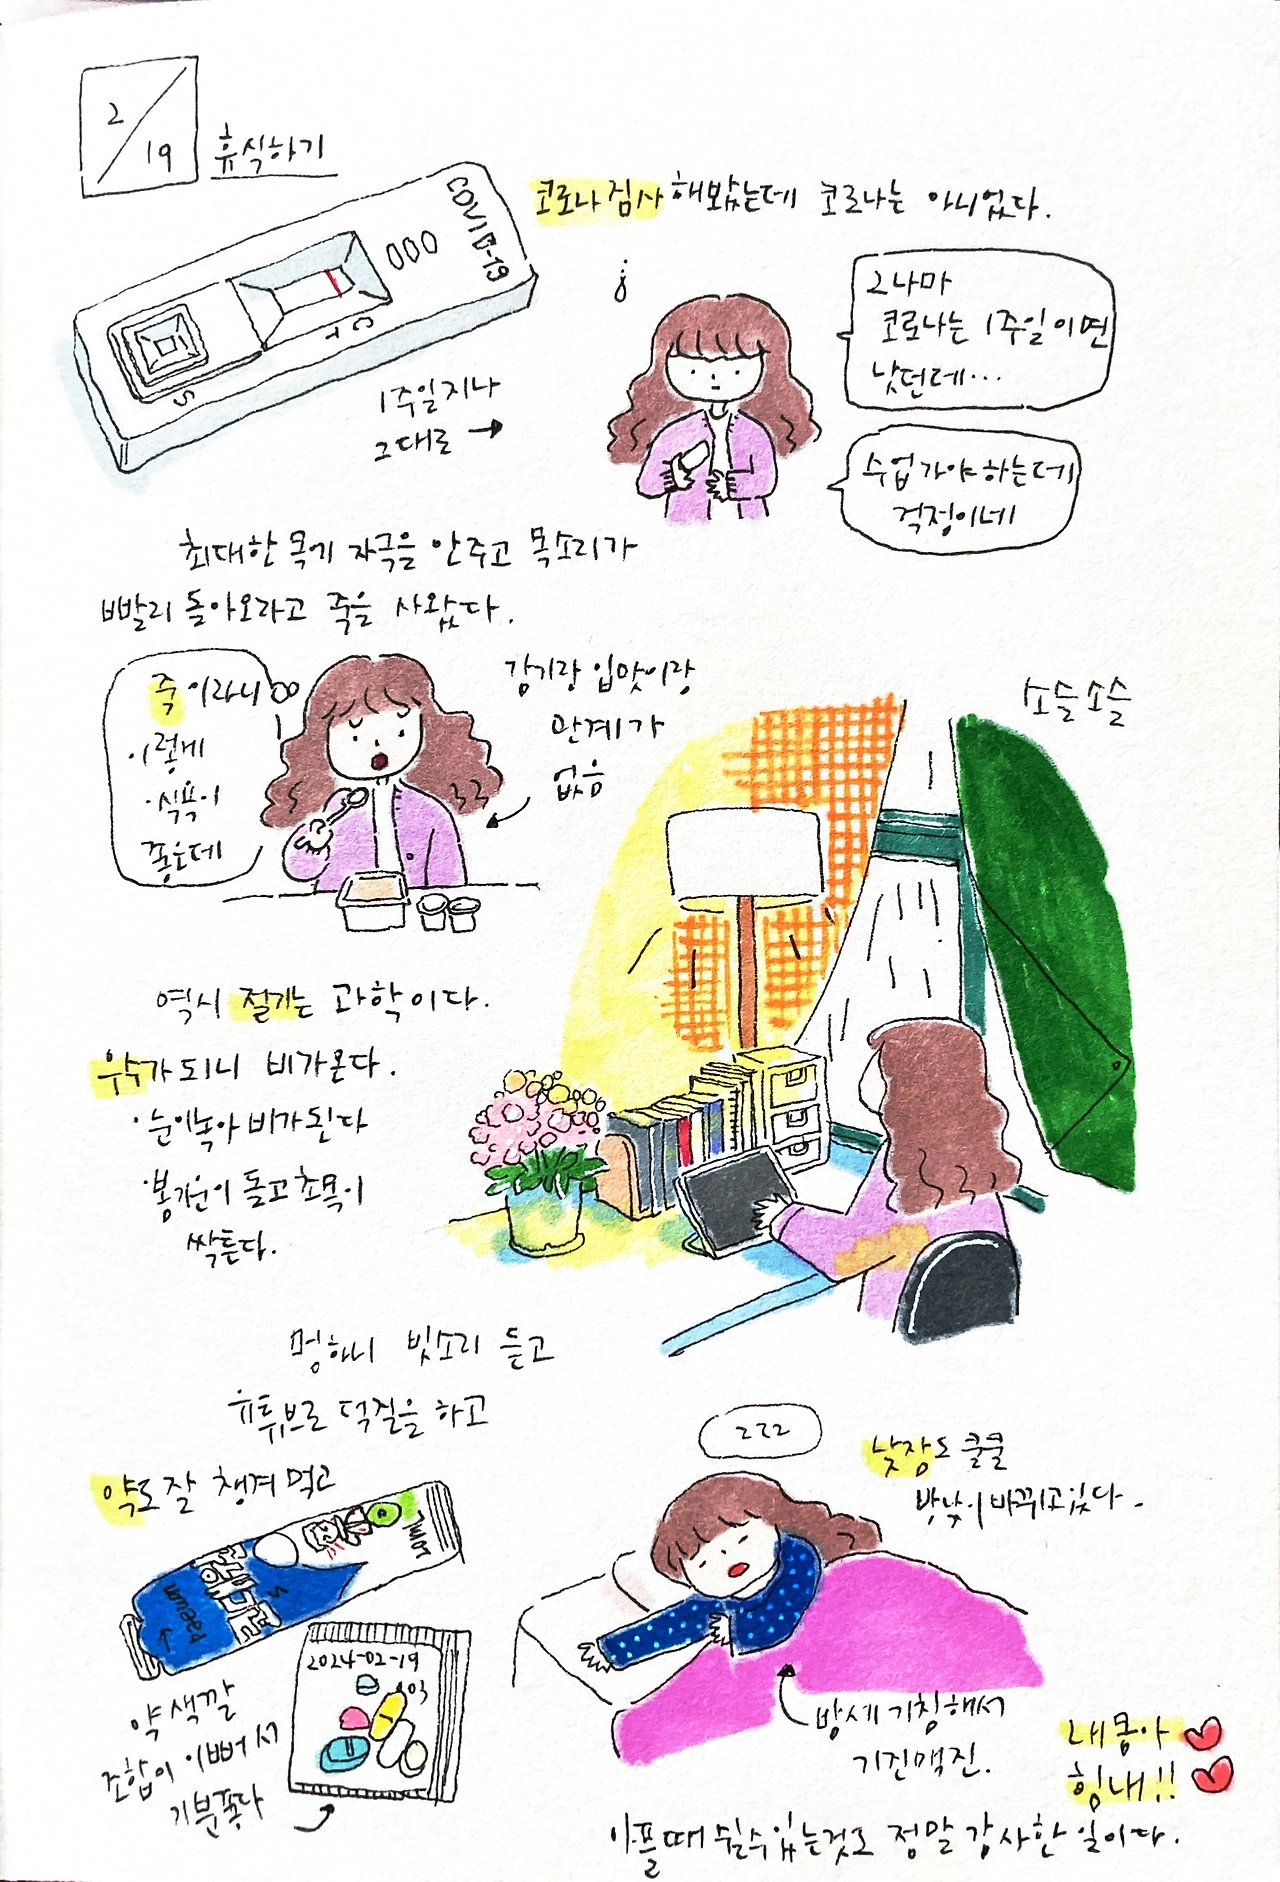 2/19
휴식하기
COVID-19
C
T
S
코로나 검사 해봤는데 코로나는 아니었다.
그나마
코로나는 1주일이면
낫던데...
1주일 지나
그대로 →
수업 가야 하는데
걱정이네
최대한 목기 자극을 안주고 목소리가
빨리 돌아오라고 죽을 사왔다.
죽이라니
이렇게
식욕이
좋은데
감기랑 입맛이랑
관계가
없음
소슬소슬
역시 절기는 과학이다.
우수가 되니 비가온다.
·눈이녹아 비가된다
·봄기운이 돌고 초목이
싹튼다.
멍하니 빗소리 듣고
유튜브로 덕질을 하고
약도 잘 챙겨 먹고
zzz
낮잠도 쿨쿨
밤낮이 바뀌고있다.
2024-02-19
약 색깔
조합이 이뻐서
기분좋다
밤새 기침해서
기진맥진.
내몸아
힘내!!
아플때 쉴수있는것도 정말 감사한 일이다.